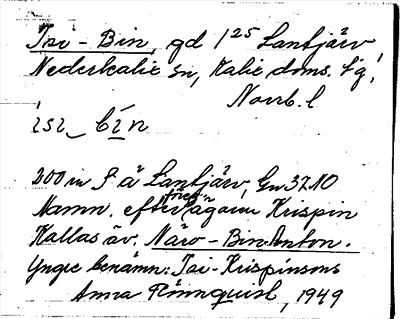 Isi - Bin, gd 1²⁵ Lantjärv
Nederkalix sn, Kalix doms. tg,
Norrb. l
ísi_ bín
300 m S å Lantjärv, Gn 3210
Namn. efter föreg. ägaren Krispin
Kallas äv. Närö - Bin-Anton.
Yngre benämn: Isi-Krispinsons
Anna Rönnquist, 1949